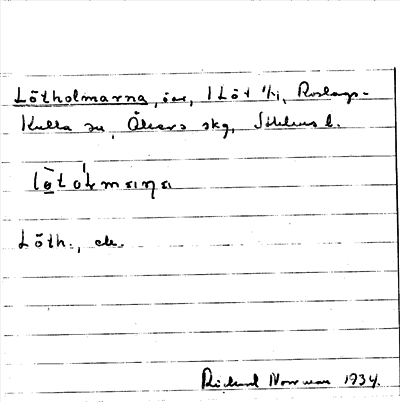 Lötholmarna, öar, i Löt 1/1, Roslags-
Kulla sn, Åkers skg, Sthlms l.
Löth., ds.
Rickard Norrman 1934.